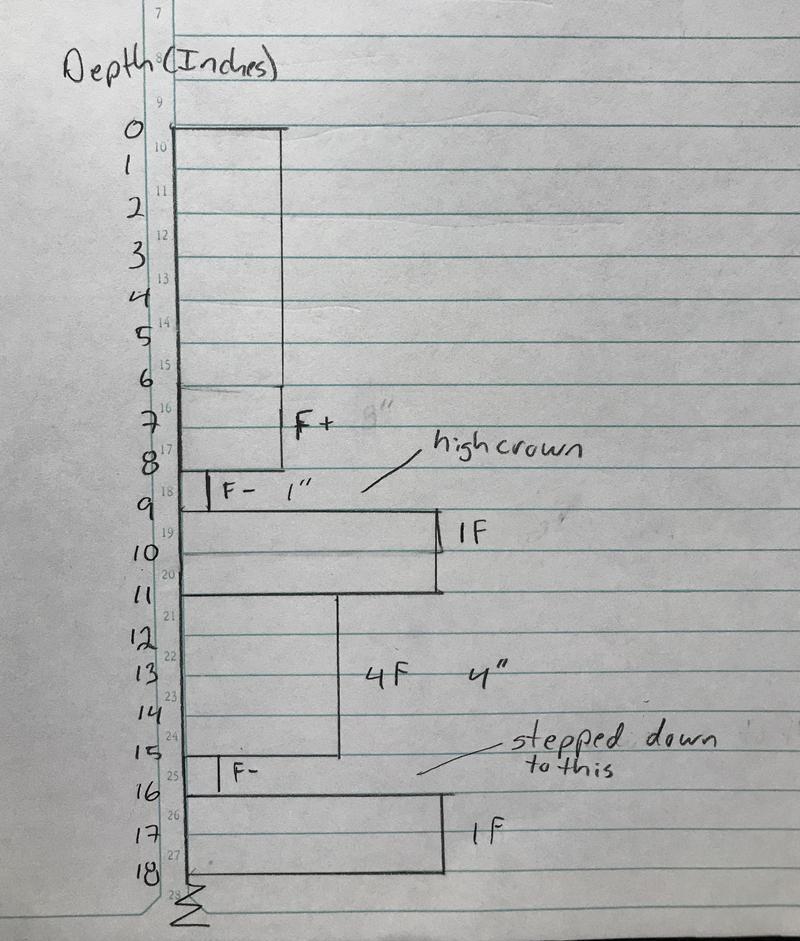 7
8
Depth (Inches)
9
0
10
1
11
2
12
3
13
4
14
5
15
6
16
7
F+ 8"
17
high crown
8
18
F- 1"
9
19
1F
10
20
11
21
12
22
13
4F 4"
23
14
24
15
stepped down
to this
25
F-
16
26
17
1F
27
18
28